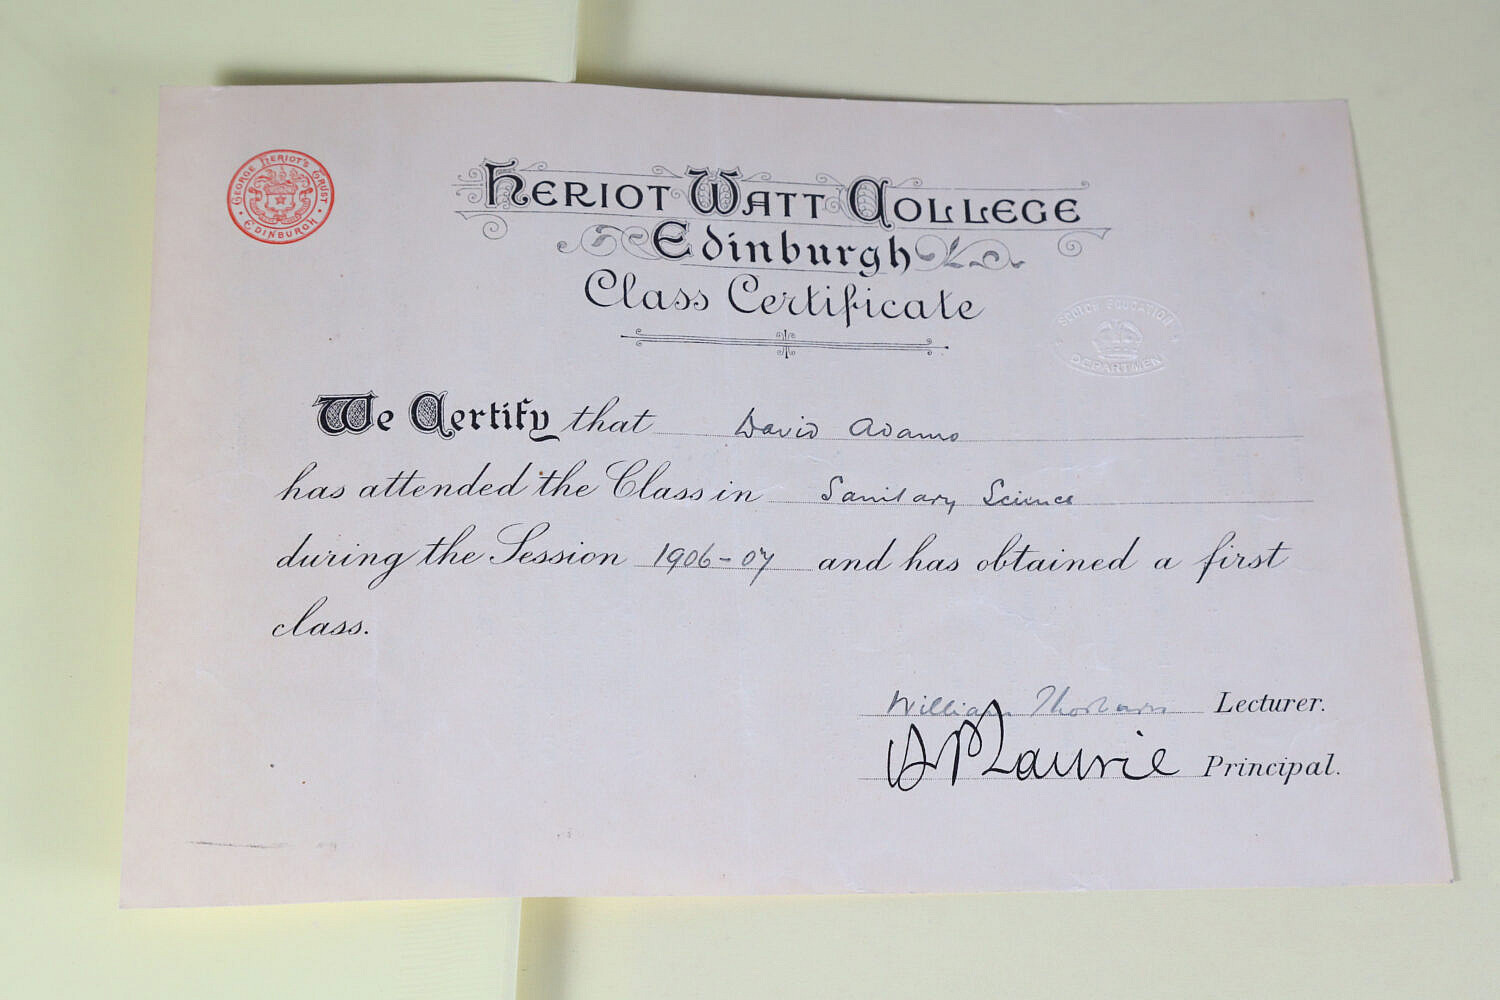 GEORGE HERIOT'S TRUST
EDINBURGH
HERIOT WATT COLLEGE
Edinburgh
Class Certificate
SCOTCH EDUCATION
DEPARTMENT
We Certify that David Adams
has attended the Class in Sanitary Science
during the Session 1906-07 and has obtained a first
class.
William Thorburn Lecturer.
A P Laurie Principal.